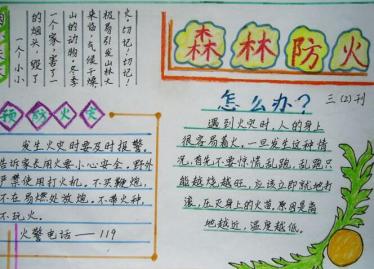 森林防火
一个小小
的烟头,毁了
一个家,害了一
山的动物。冬季
来临,气候干燥,
极易引发山林大
火,切记!切记!
预防火灾
发生火灾时要及时报警。
告诉家长用火要小心安全,野外
严禁使用打火机。不买鞭炮,
不在易燃处放炮。不带火种,
不玩火。
火警电话——119
怎么办?
三(2)刊
遇到火灾时,人的身上
很容易着火,一旦发生这种情
况,首先不要惊慌乱跑,乱跑只
能越烧越旺,应该立即就地打
滚,在灭身上的火苗,原因是离
地越近,温度越低。